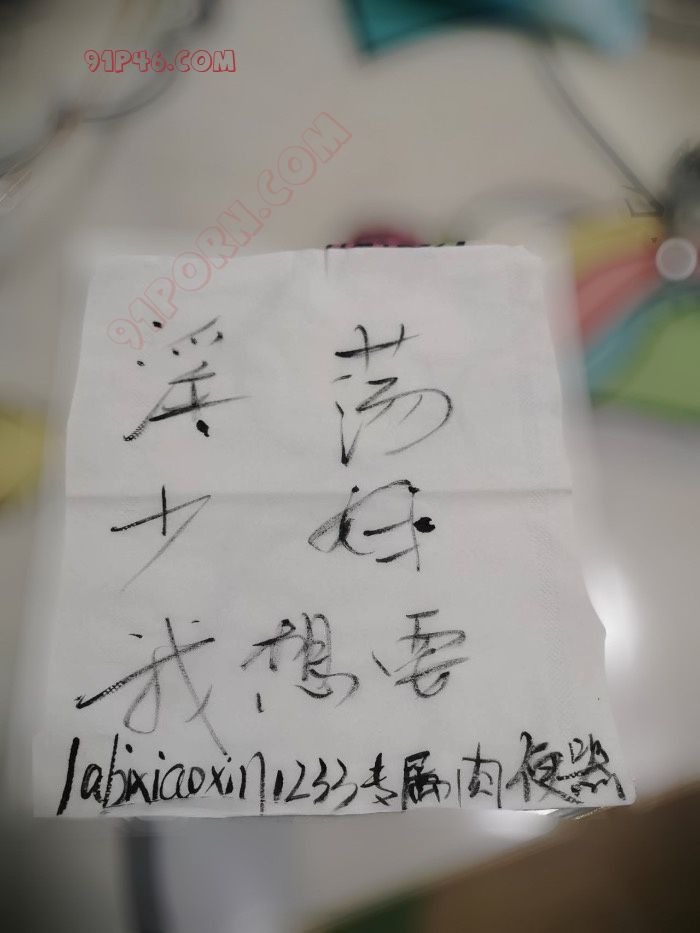 91P46.COM
91PORN.COM
淫荡
少妇
我想要
labixiaoxin1233专属肉便器